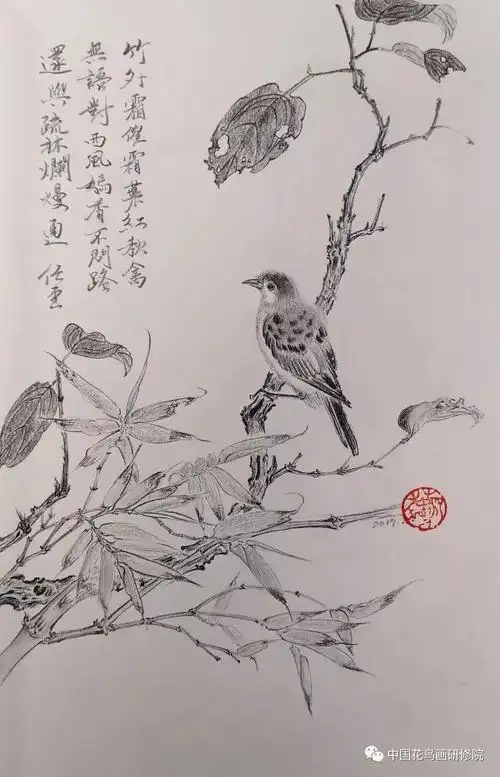 竹外霜催霜葉紅秋禽
無語對西風嫣香不問路
還與疏林爛熳通 任重
2019.
中国花鸟画研修院